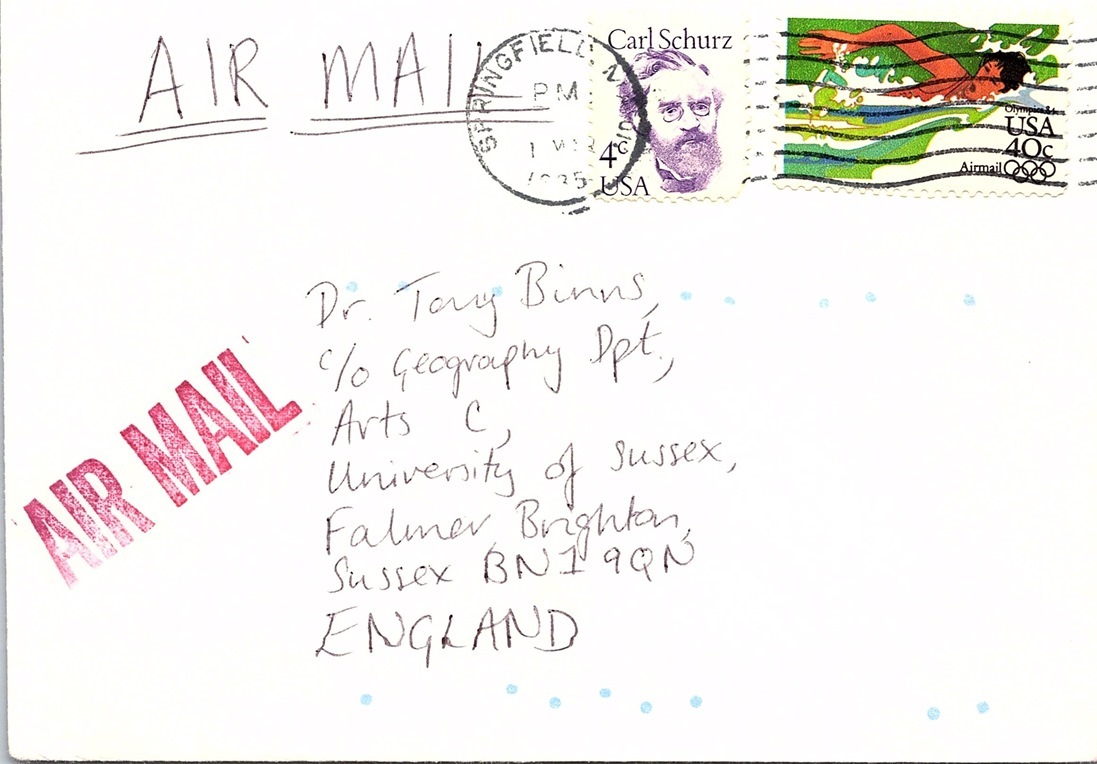 AIR MAIL
SPRINGFIELD,
PM
1
Carl Schurz
4c
USA
Olympics 84
USA
40c
Airmail
Dr. Tony Binns,
c/o Geography Dpt,
Arts C,
University of Sussex,
Falmer, Brighton,
Sussex BN1 9QN
ENGLAND
AIR MAIL